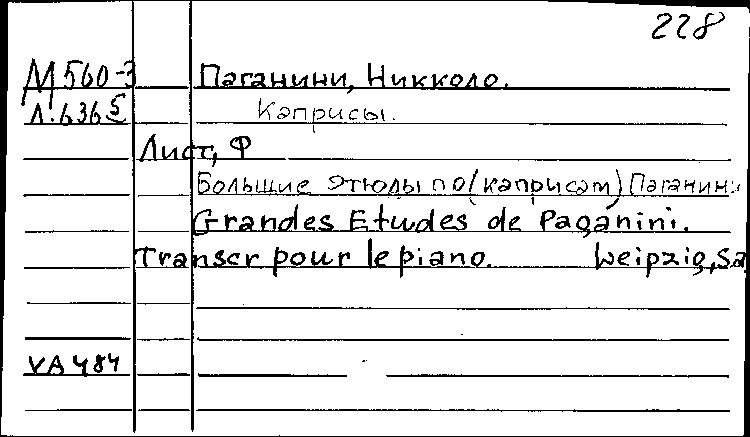 228
М560-3 Паганини, Никколо.
Л.636 Каприсы.
Лист, Ф
Большие этюды по (каприсам) Паганини
Grandes Etudes de Paganini.
Transcr pour le piano. Leipzig,
VA 484